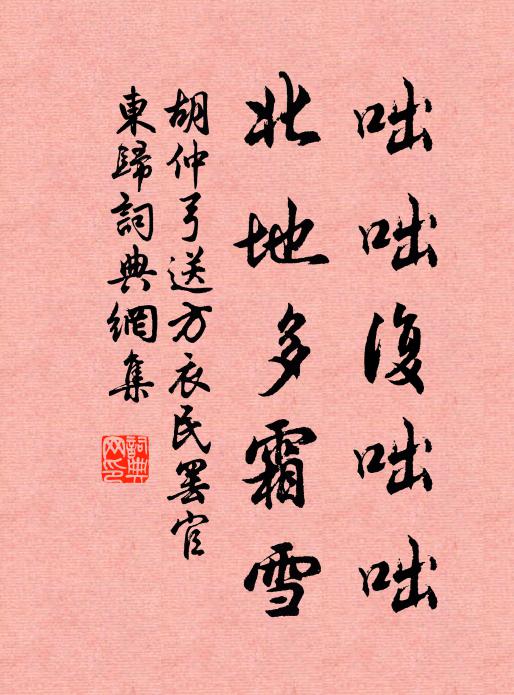 咄咄復咄咄
北地多霜雪
胡仲弓送方衣民罢官
東歸詞典網集
詞典网印